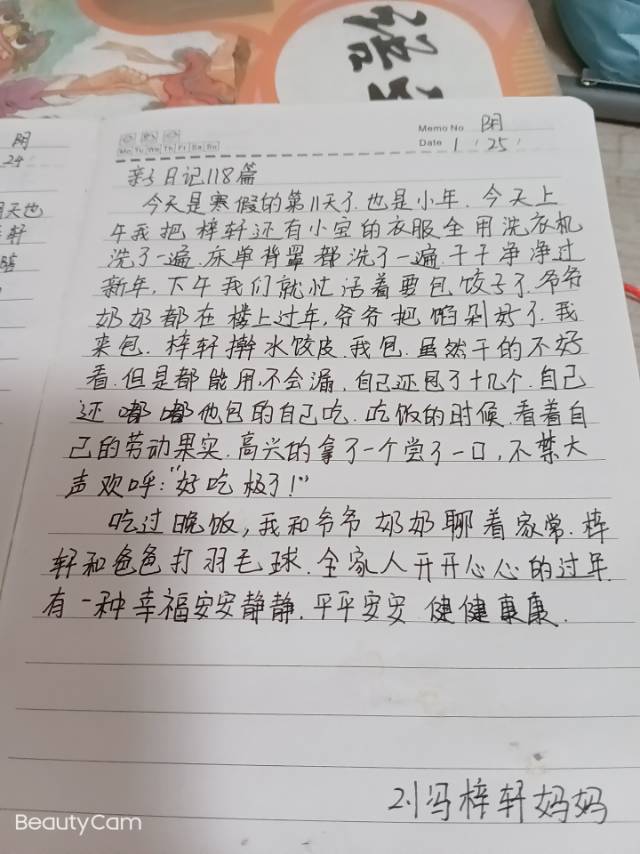 Memo No 阴
Mo Tu We Th Fr Sa Su
Date 1 / 25 /
亲子日记118篇
今天是寒假的第11天了.也是小年.今天上
午我把梓轩还有小宝的衣服全用洗衣机
洗了一遍.床单背罩都洗了一遍.干干净净过
新年,下午我们就忙活着要包饺子了.爷爷
奶奶都在楼上过年,爷爷把馅剁好了.我
来包.梓轩擀水饺皮.我包.虽然干的不好
看.但是都能用.不会漏,自己还包了十几个.自己
还嘟嘟他包的自己吃.吃饭的时候.看着自
己的劳动果实.高兴的拿了一个尝了一口,不禁大
声欢呼:"好吃极了!"
吃过晚饭,我和爷爷奶奶聊着家常.梓
轩和爸爸打羽毛球.全家人开开心心的过年.
有一种幸福安安静静.平平安安 健健康康.
刘冯梓轩妈妈
阴
24
BeautyCam